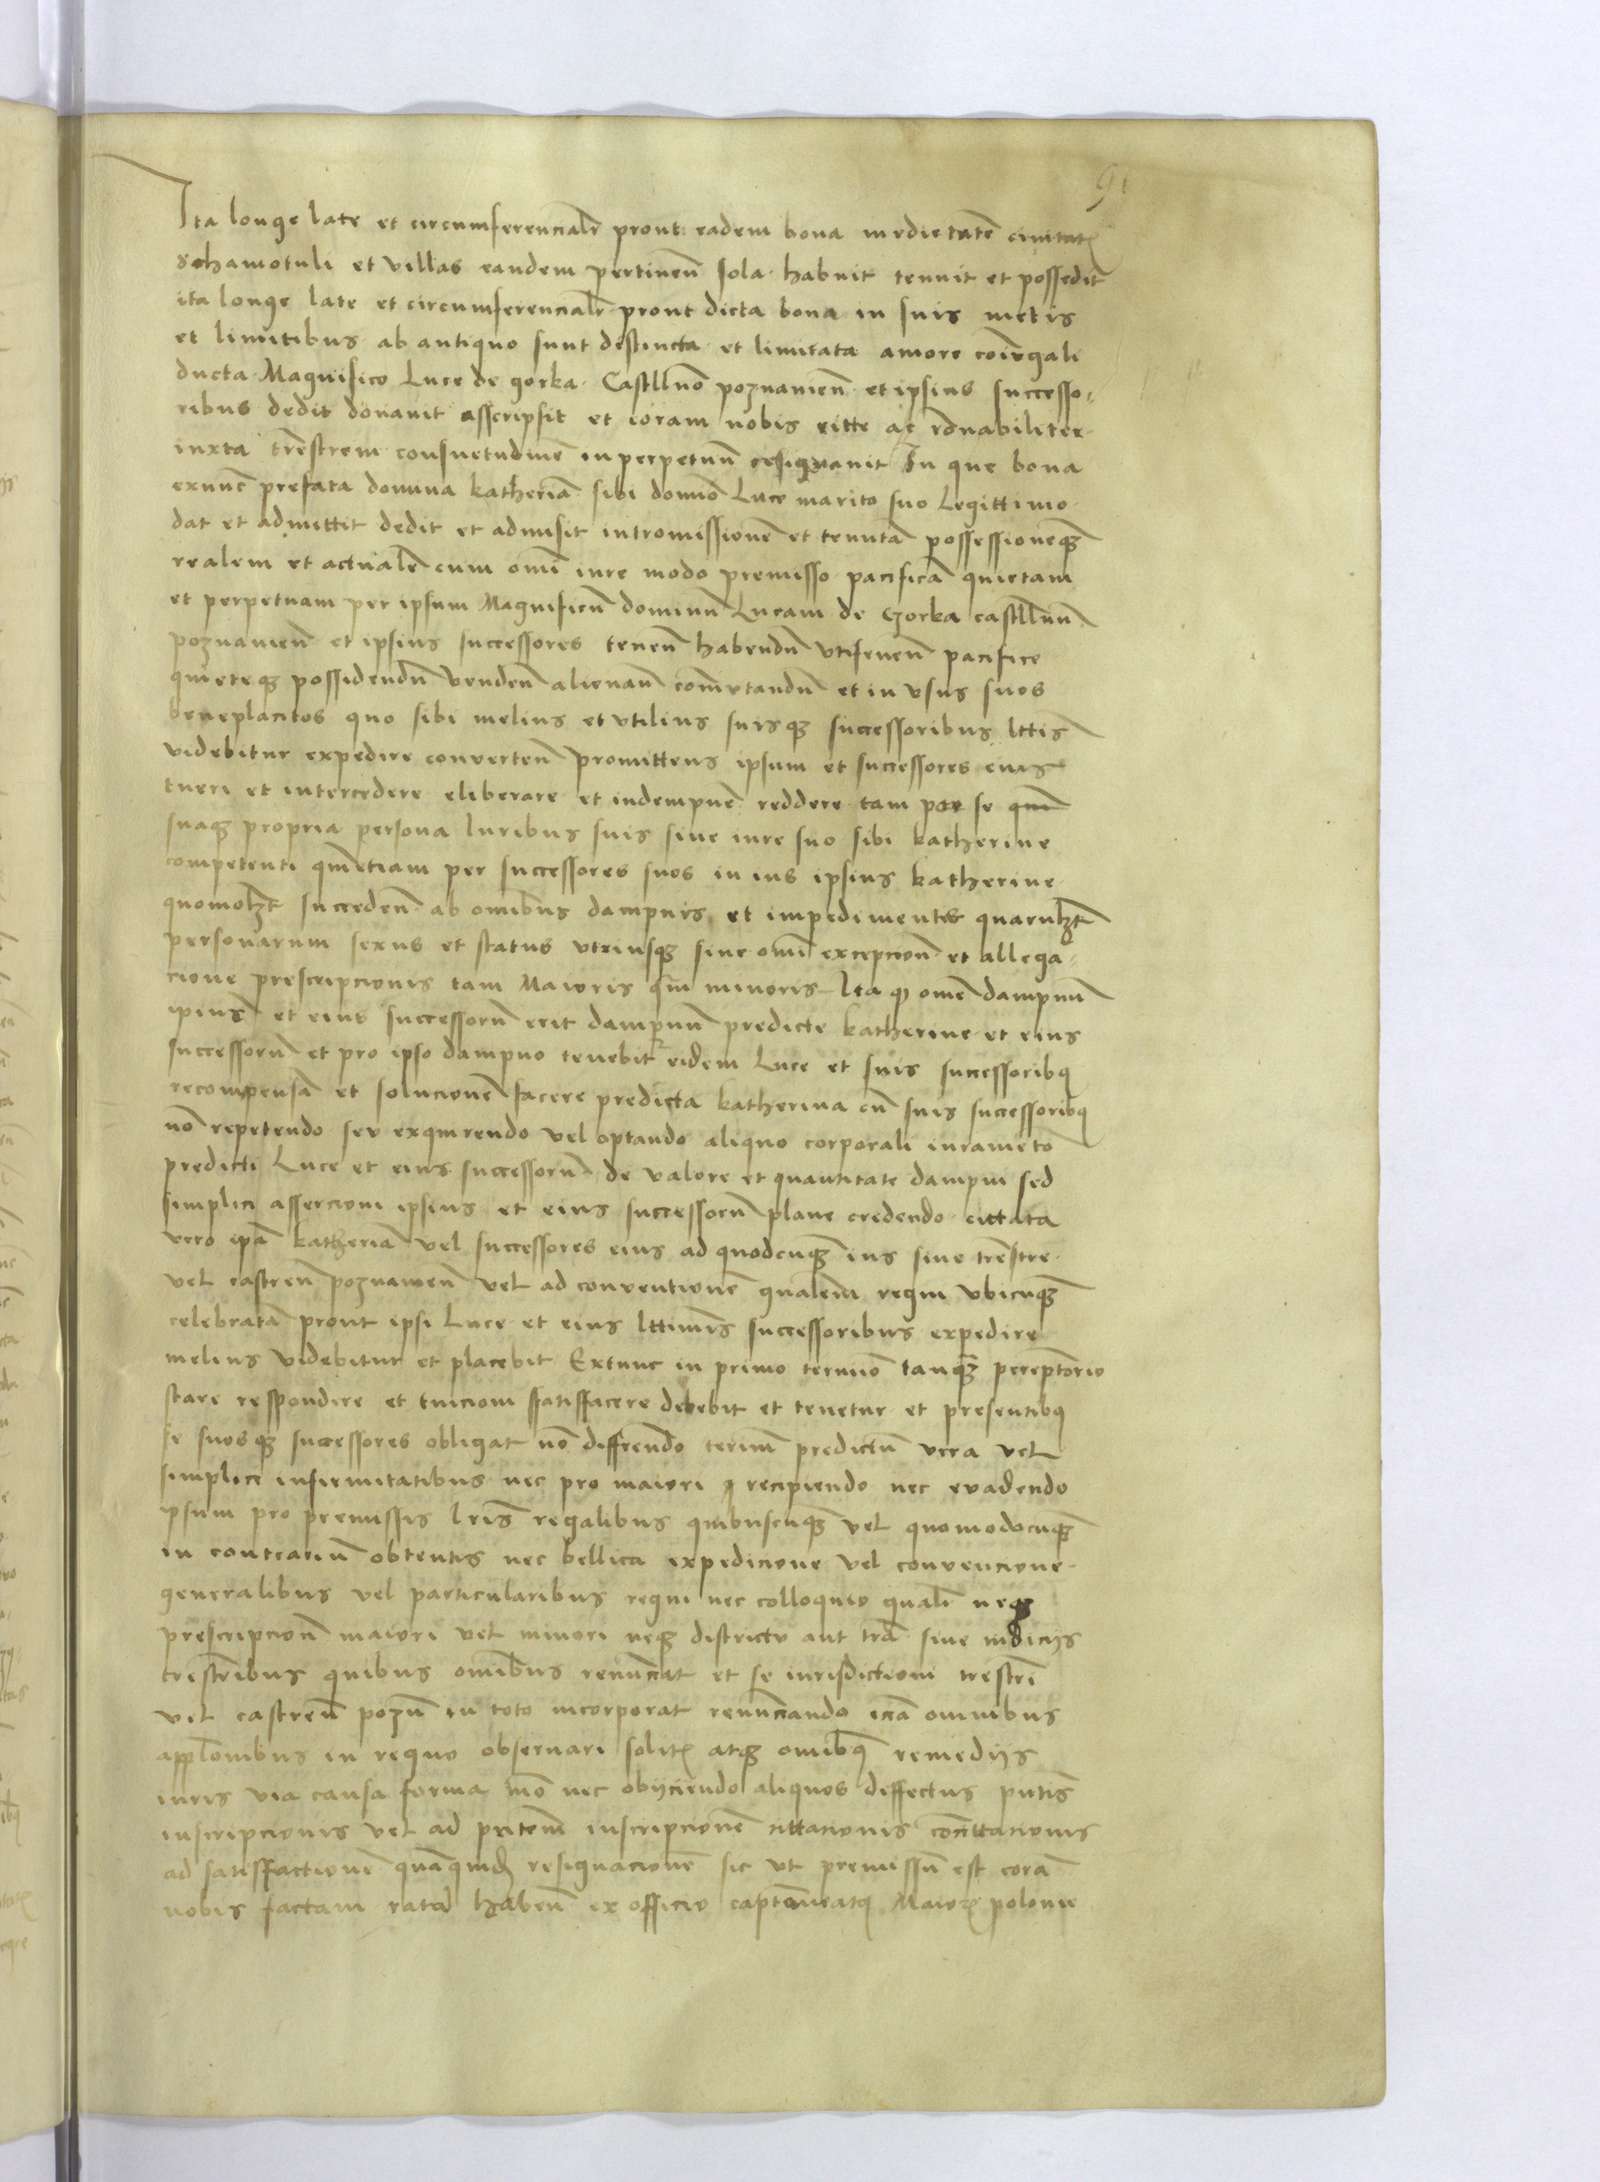 91
Ita longe late et circumferencialr prout eadem bona medietatē civitatꝭ
Schamotuli et villas eandem pertinen̄ sola habuit tenuit et possedit
ita longe late et circumferencialr prout dicta bona in suis metis
et limitibus ab antiquo sunt destincta et limitata amore coīugali
ducta Magnifico Luce de gorka Castllnō poznanien̄ et ipsius successo⸗
ribus dedit donavit asscripsit et coram nobis ritte ac rōnabiliter
iuxta trēstrem consuetudinē inperpetuū resignavit In que bona
exnūc prefata domina katherīa sibi domīo Luce marito suo Legittimo
dat et admittit dedit et admisit intromissionē et tenutā possessioneqꝫ
realem et actualē cum omī iure modo premisso pacificā quietam
et perpetuam per ipsum Magnificū dominū Lucam de Gorka castllanū
poznanien̄ et ipsius successores tenen̄ habendū utifruen̄ pacifice
quieteqꝫ possidendū venden̄ alienan̄ com̄utandū et in usus suos
beneplacitos quo sibi melius et utilius suisqꝫ successoribus lttis
videbitur expedire converten̄ Promittens ipsum et successores eius
tueri et intercedere eliberare et indempnē reddere tam per se qm̄
suaqꝫ propria persona Iuribus suis sive iure suo sibi katherine
competenti qm̄etiam per successores suos in ius ipsius katherine
quomolꝫt succeden̄ ab omībus dampnis et impedimentis quarulꝫt
personarum sexus et status utriusqꝫ sine omī excepcion̄ et allega⸗
cione prescripcionis tam Maioris qm̄ minoris Ita qꝫ omē dampnū
ipius et eius successorū erit dampnum predicte katherine et eius
successorū et pro ipso dampno tenebitr eidem Luce et suis successoribꝫ
recompensā et solucionē facere predicta katherina cū suis successoribꝫ
nō repetendo seu exquirendo vel optando aliquo corporali iuramēto
predicti Luce et eius successorū de valore et quantitate dampni sed
simplici assercioni ipsius et eius successorū plane credendo cittata
vero ipā katherīa vel successores eius ad quodcūqꝫ ius sive trēstre
vel castren̄ poznanien̄ vel ad conventionē gnalem regni ubicūqꝫ
celebratā prout ipsi Luce et eius lttimis successoribus expedire
melius videbitur et placebit Extunc in primo termīo tanqꝫ pereptorio
stare respondere et tuicioni satisfacere debebit et tenetur et presentibꝫ
se suosqꝫ successores obligat nō differendo terim̄ predictū vera vel
simplice infirmitatibus nec pro maiori recipiendo nec evadendo
ipsum pro premissis lris regalibus quibuscūqꝫ vel quomodocūqꝫ
in contrariū obtentis nec bellica expedicione vel convencione
generalibus vel particularibus regni nec colloquio gnali neqꝫ
prescripcion̄ maiori vel minori neqꝫ districtu aut trā sive iudicijs
trēstribus quibus omībus renūcīat et se iurisdictioni trēstri
vel castren̄ pozn̄ in toto incorporat renūciando omnibus
applōnibus in regno observari solitꝭ atqꝫ omībꝫ remedijs
iuris via causa forma mō nec obijciendo aliquos deffectus pn̄tis
inscripcionis vel ad pn̄tem inscripcionē cittacionis
ad satisfactionē quāquidē resignacionē sic ut premissū est corā
nobis factam ratā haben̄ ex officio captaneatꝫ Maiorꝭ polonie